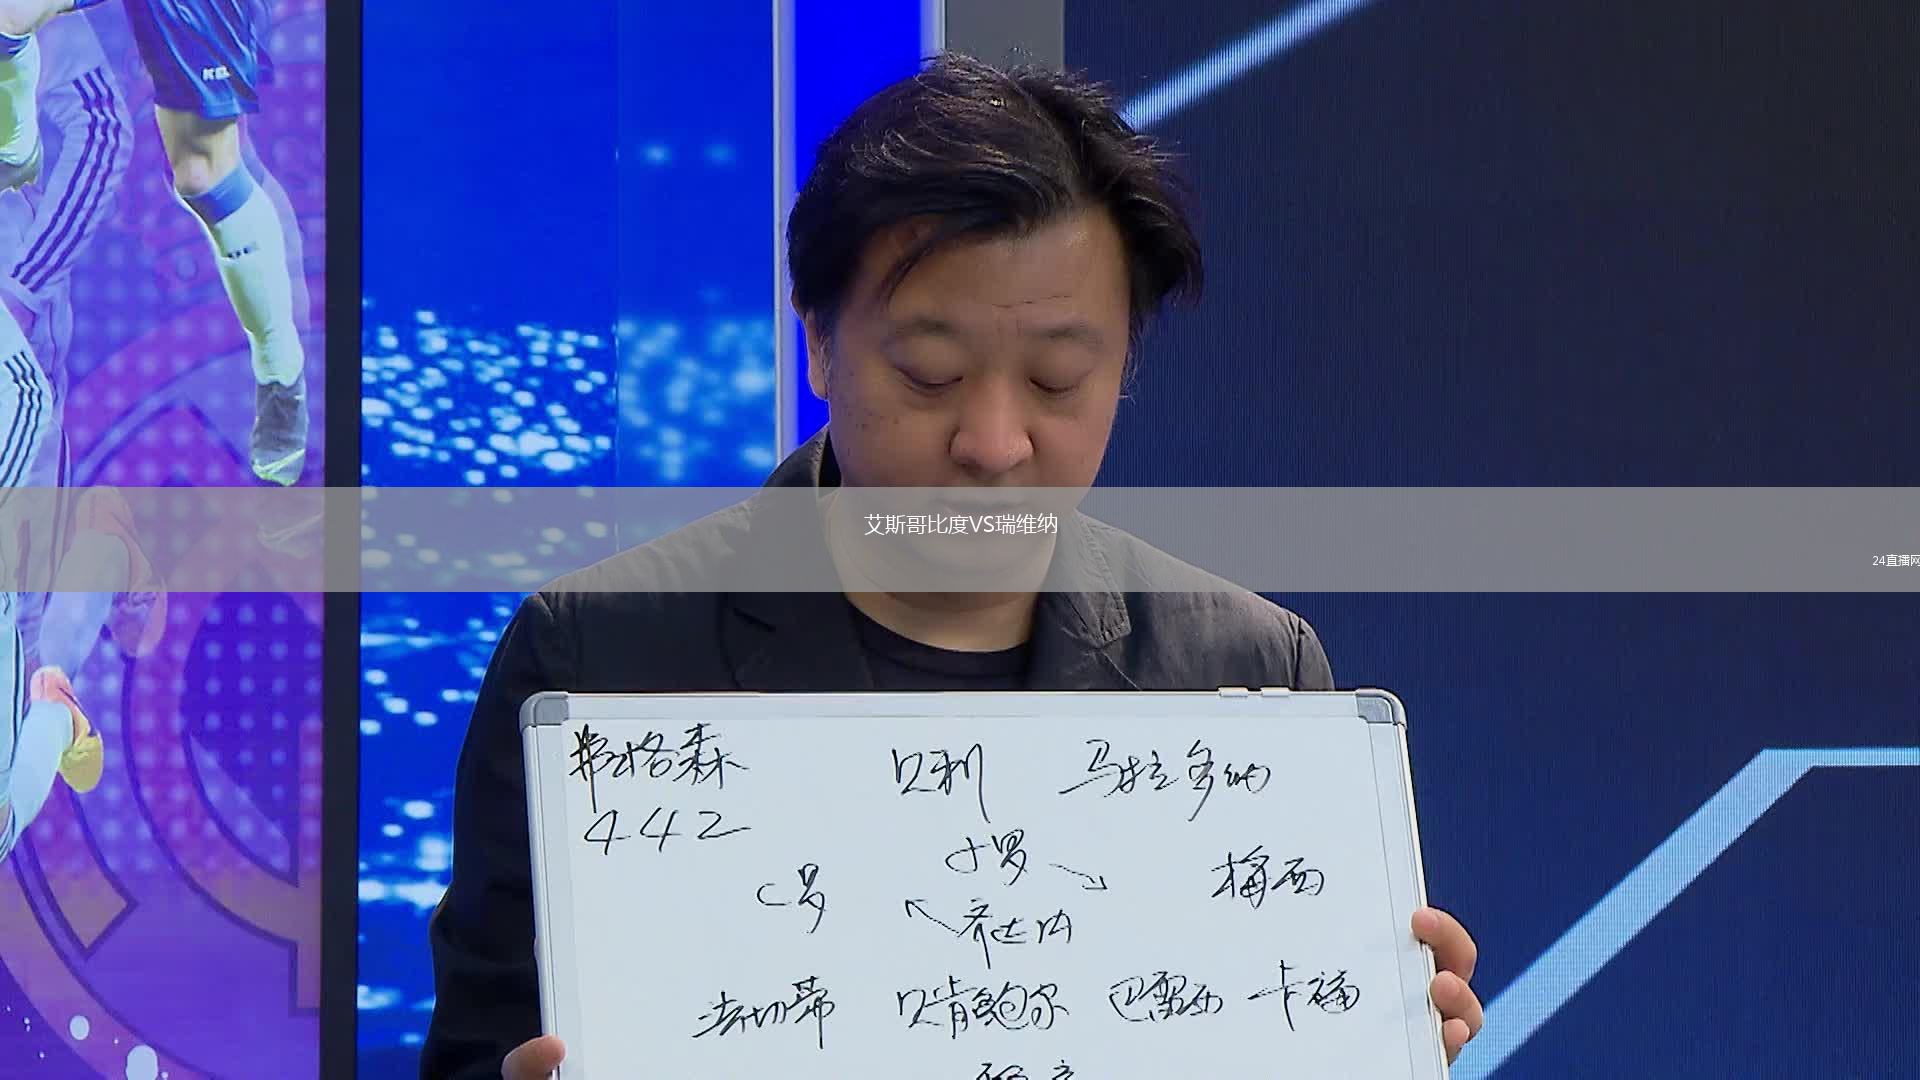 艾斯哥比度VS瑞维纳
24直播网
弗格森 贝利 马拉多纳
442
小罗
C罗 梅西
齐达内
法切蒂 贝肯鲍尔 巴雷西 卡福